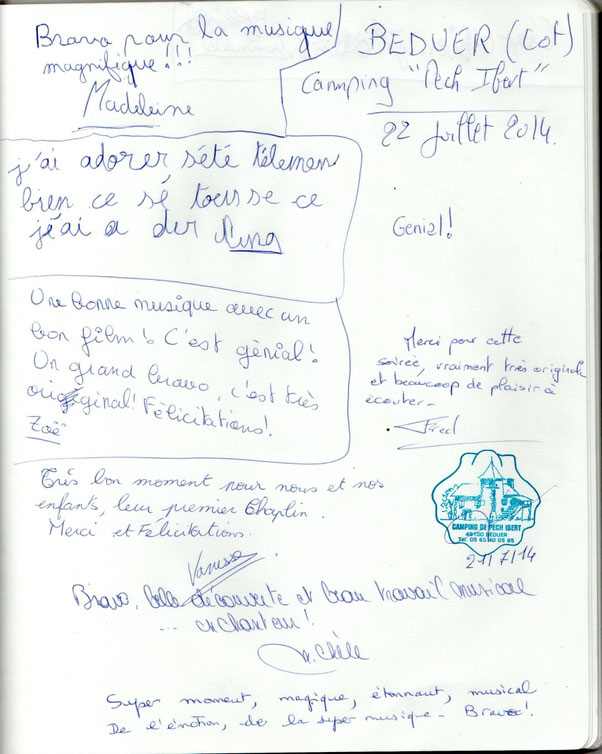 Bravo pour la musique
magnifique!!!
Madeleine
BEDUER (Lot)
Camping "Pech Ibert"
22 Juillet 2014.
j'ai adorer sété télemen
bien ce sé tousse ce
jéai a der
Genial!
Une bonne musique avec un
bon film! C'est génial!
Un grand bravo, c'est très
original! Félicitations!
Zoë
Merci pour cette
soirée, vraiment très originale
et beaucoup de plaisir à
écouter-
Fred
Très bon moment pour nous et nos
enfants, leur premier Chaplin.
Merci et Felicitations.
Vanessa
CAMPING DE PECH IBERT
46100 BEDUER
Tél. 05 65 40 05 85
21/7/14
Bravo, belle découverte et beau travail musical
... enchanteur!
M. Chèle
Super moment, magique, étonnant, musical
De l'émotion, de la super musique - Bravo!